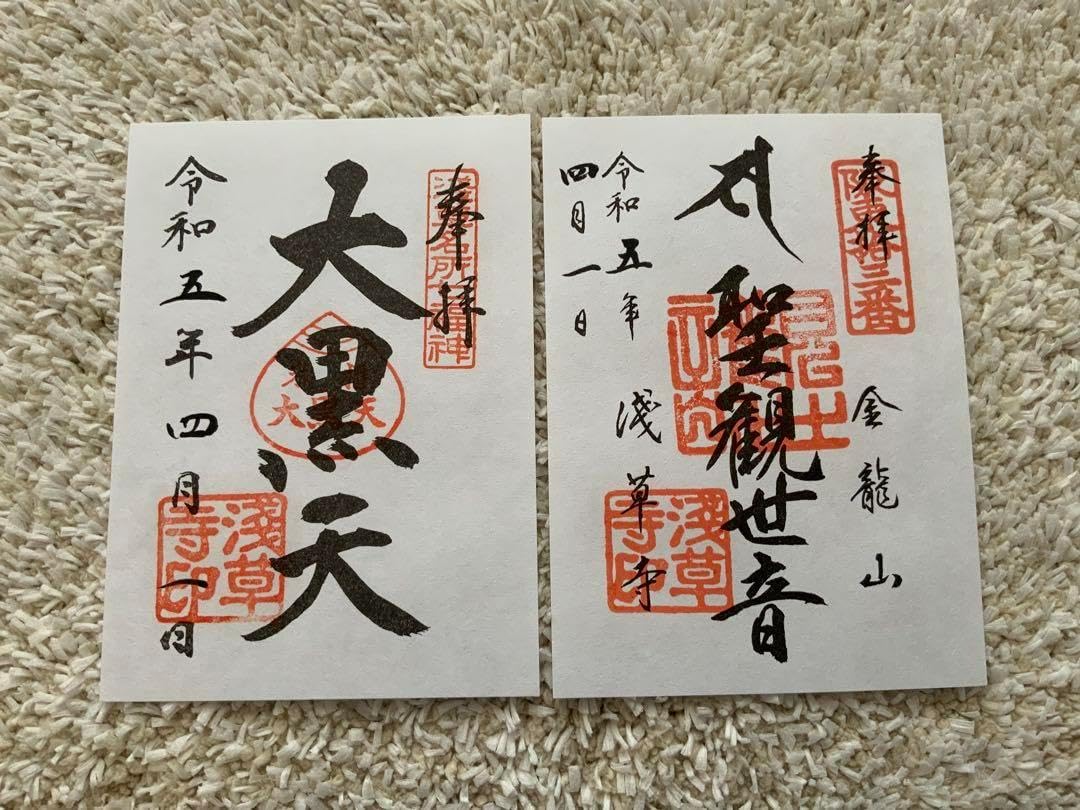 奉拝
浅草名所七福神
大黒天
大黒天
令和五年四月一日
淺草寺印
奉拝
坂東拾三番
金龍山
聖観世音
浅草寺
令和五年
四月一日
淺草寺印